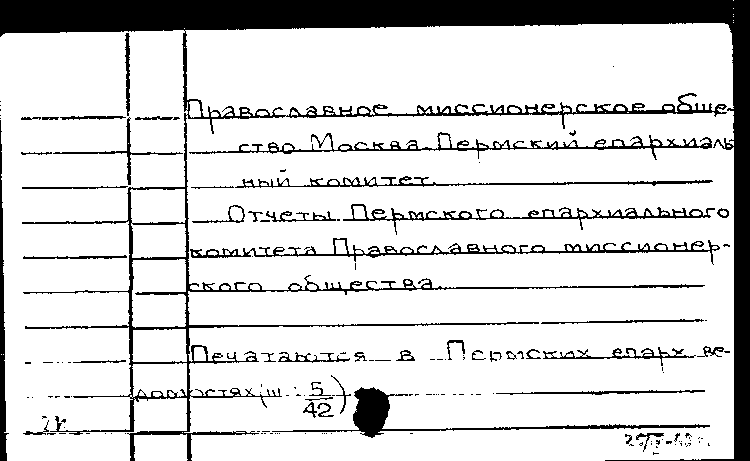 Православное миссионерское обще-
ство Москва. Пермский епархиаль
ный комитет.
Отчеты Пермского епархиального
комитета Православного миссионер-
ского общества.
Печатаются в Пермских епарх ве-
домостях (ш : 5/42)